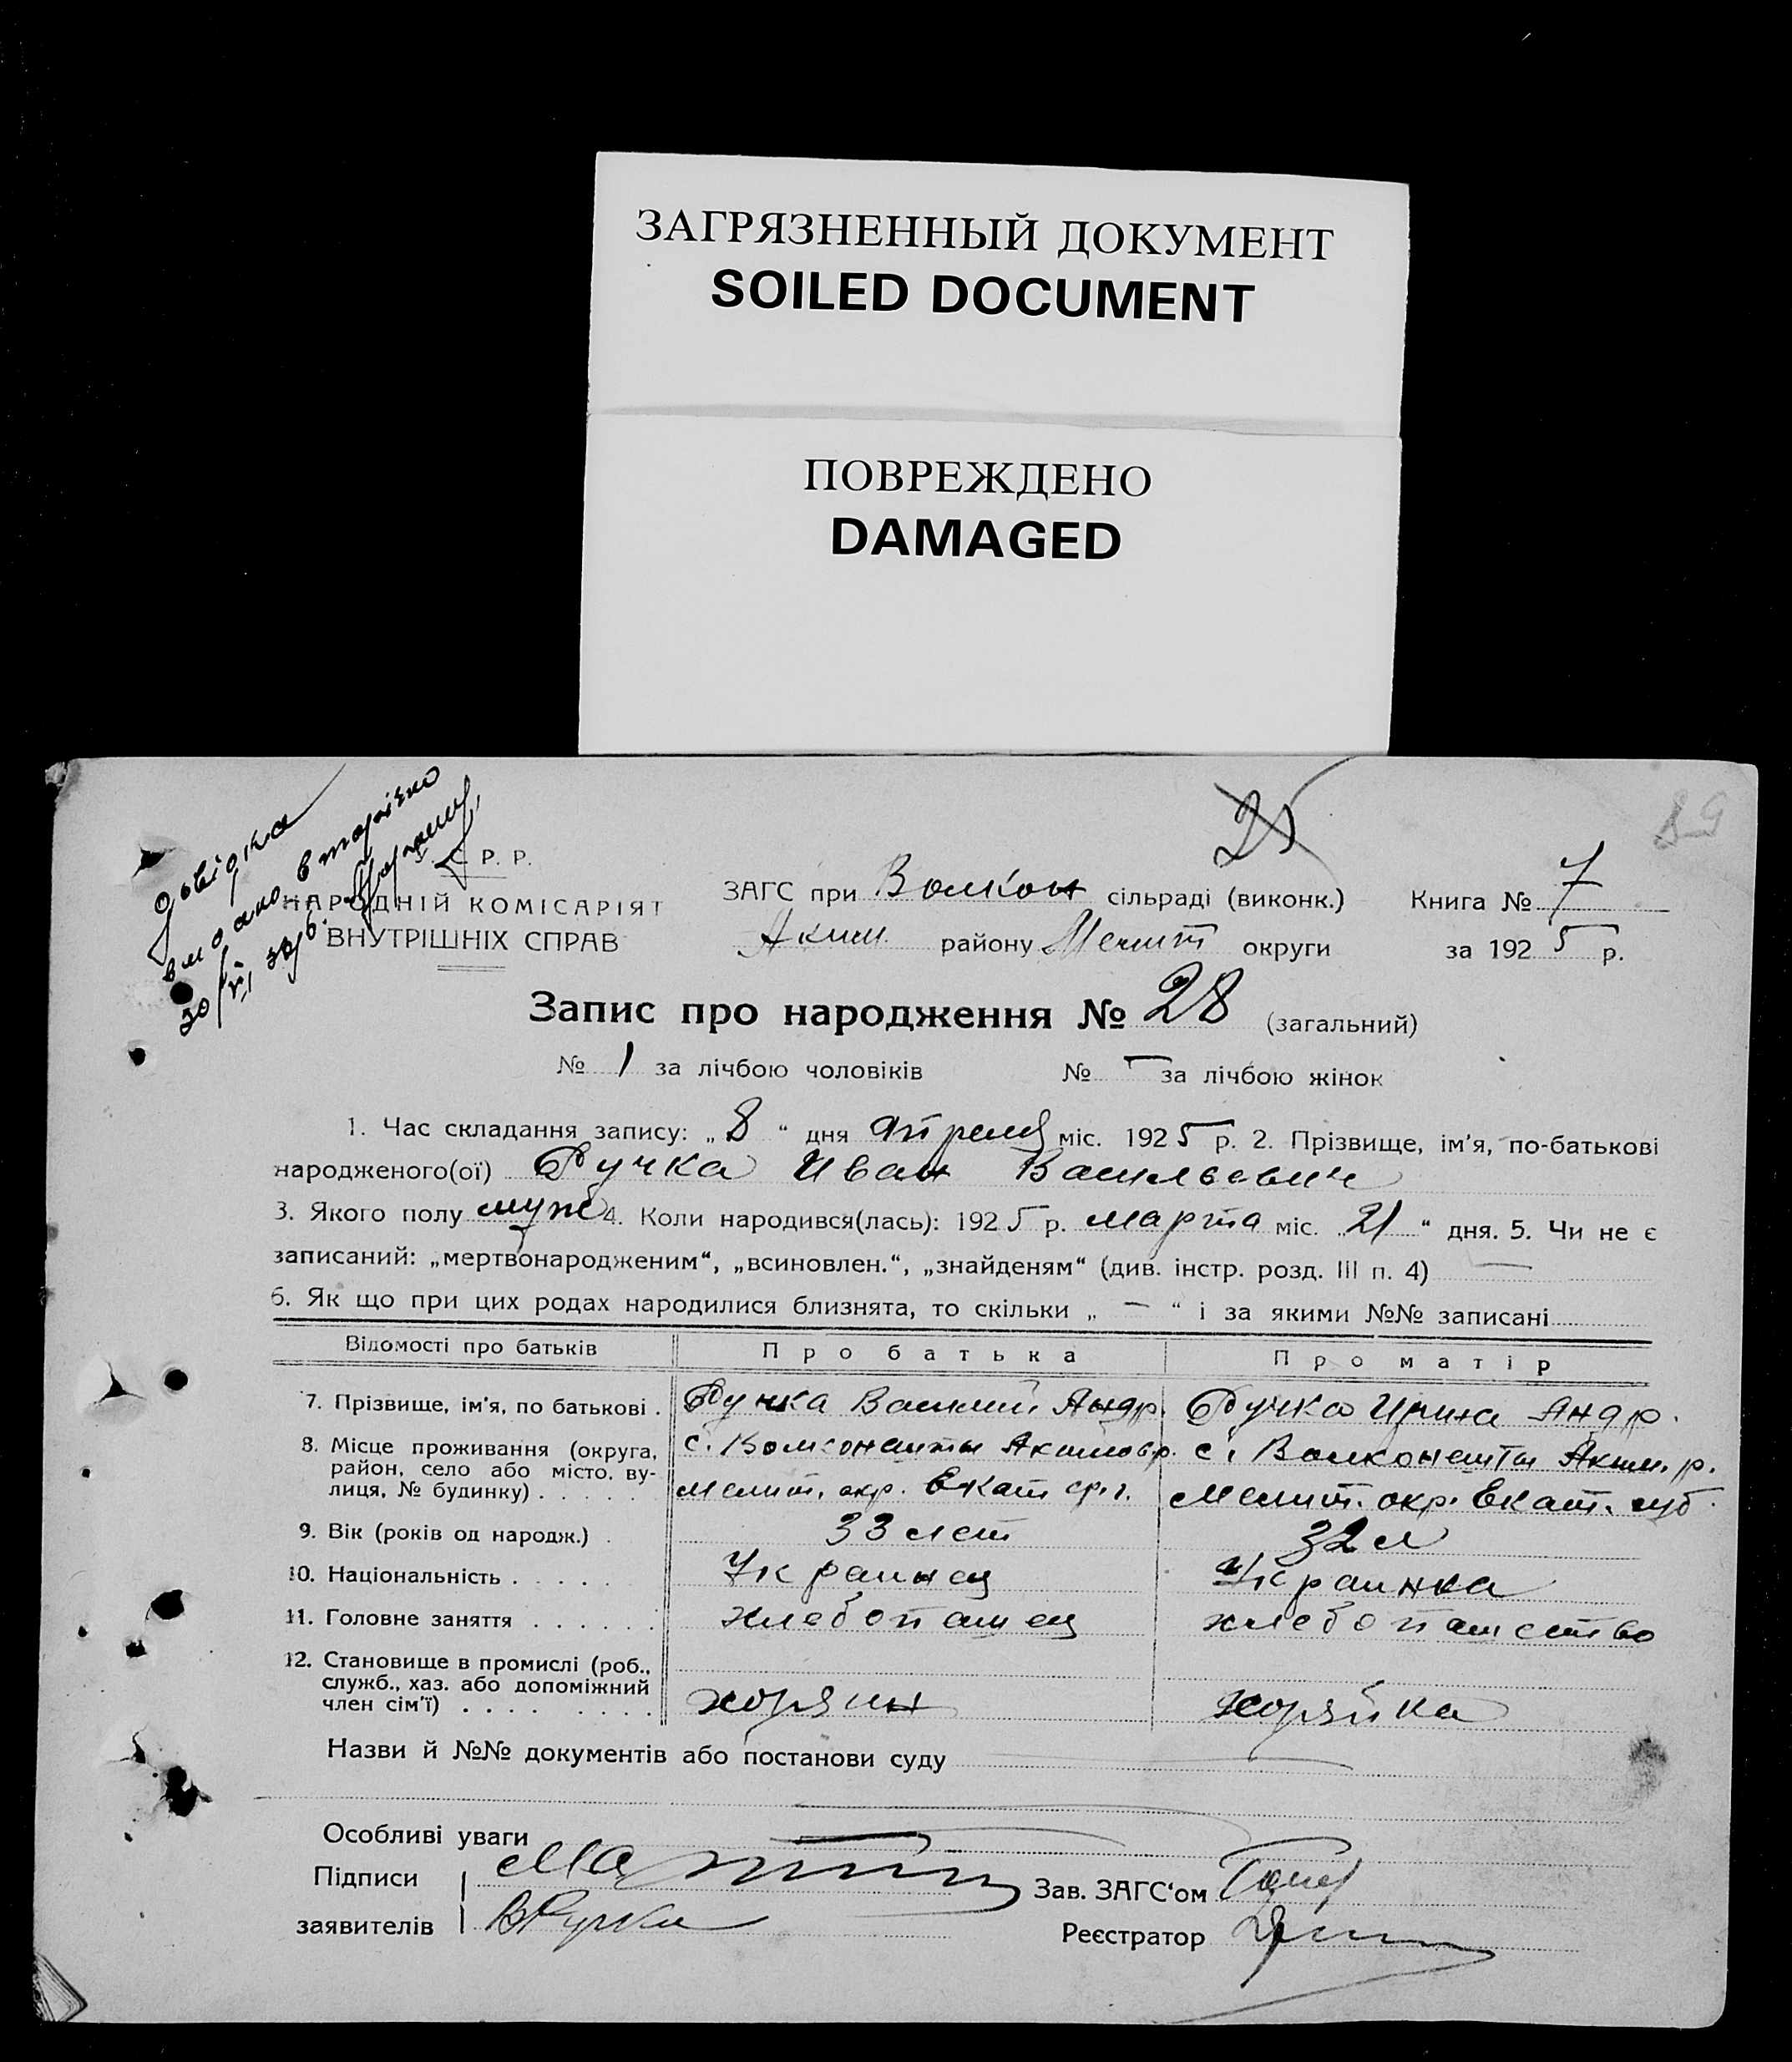 ЗАГРЯЗНЕННЫЙ ДОКУМЕНТ
SOILED DOCUMENT
ПОВРЕЖДЕНО
DAMAGED
25
89
довідка
видано вторічно
С. Р. Р.
НАРОДНІЙ КОМІСАРІЯТ
ВНУТРІШНІХ СПРАВ
ЗАГС при Волкон сільраді (виконк.) Книга № 7
Аким. району Мелит округи за 1925 р.
Запис про народження № 28 (загальний)
№ 1 за лічбою чоловіків № — за лічбою жінок
1. Час складання запису: „8“ дня апреля міс. 1925 р. 2. Прізвище, ім'я, по-батькові
народженого(ої) Ручка Иван Васильевич
3. Якого полу муж 4. Коли народився(лась): 1925 р. марта міс. „21“ дня. 5. Чи не є
записаний: „мертвонародженим“, „всиновлен.“, „знайденям“ (див. інстр. розд. III п. 4) —
6. Як що при цих родах народилися близнята, то скільки „ — “ і за якими №№ записані
Відомості про батьків Про батька Про матір
7. Прізвище, ім'я, по батькові . Ручка Василий Андр. Ручка Ирина Андр.
8. Місце проживання (округа, с. Волконешты Акимов р. с. Волконешты Аким. р.
район, село або місто, ву-
лиця, № будинку) . . . . . Мелит. окр. Екат Мелит. окр. Екат. губ.
9. Вік (років од народж.) . 33 лет 32 л
10. Національність . . . . . Украинец Украинка
11. Головне заняття . . . . . . хлебопашец хлебопашество
12. Становище в промислі (роб.,
служб., хаз. або допоміжний
член сім'ї) . . . . . . . . хозяин хозяйка
Назви й №№ документів або постанови суду
Особливі уваги
Підписи
Зав. ЗАГС'ом
заявителів В Ручка
Реєстратор